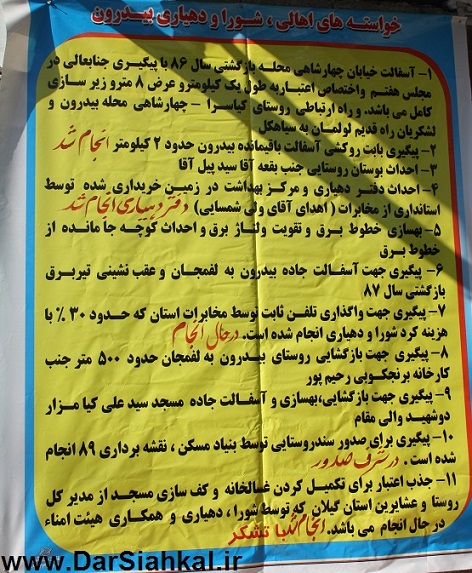 خواسته های اهالی ، شورا و دهیاری بیدرون
۱- آسفالت خیابان چهارشاهی محله بازگشتی سال ۸۶ با پیگیری جنابعالی در
مجلس هفتم و اختصاص اعتبار به طول یک کیلومتر و عرض ۸ متر و زیر سازی
کامل می باشد. و راه ارتباطی روستای کیاسرا - چهارشاهی محله بیدرون و
لشکریان راه قدیم لولمان به سیاهکل
۲- پیگیری بابت روکشی آسفالت باقیمانده بیدرون حدود ۲ کیلومتر انجام شد
۳- احداث بوستان روستایی جنب بقعه آقا سید پیل آقا
۴- احداث دفتر دهیاری و مرکز بهداشت در زمین خریداری شده توسط
استانداری از مخابرات ( اهدای آقای ولی شمسایی) دفتر دهیاری انجام شد
۵- بهسازی خطوط برق و تقویت ولتاژ برق و احداث کوچه جا مانده از
خطوط برق
۶- پیگیری جهت آسفالت جاده بیدرون به لفمجان و عقب نشینی تیربرق
بازگشتی سال ۸۷
۷- پیگیری جهت واگذاری تلفن ثابت توسط مخابرات استان که حدود ۳۰ ٪ با
هزینه کرد شورا و دهیاری انجام شده است. درحال انجام
۸- پیگیری جهت بازگشایی روستای بیدرون به لفمجان حدود ۵۰۰ متر جنب
کارخانه برنجکوبی رحیم پور
۹- پیگیری جهت بازگشایی،بهسازی و آسفالت جاده مسجد سید علی کیا مزار
دوشهید والی مقام
۱۰- پیگیری برای صدور سندروستایی توسط بنیاد مسکن ، نقشه برداری ۸۹ انجام
شده است . در شرف صدور
۱۱- جذب اعتبار برای تکمیل کردن غسالخانه و کف سازی مسجد از مدیر کل
روستا و عشایرین استان گیلان که توسط شورا ، دهیاری و همکاری هیئت امناء
در حال انجام می باشد. انجام شد با تشکر
www.DarSiahkal.ir